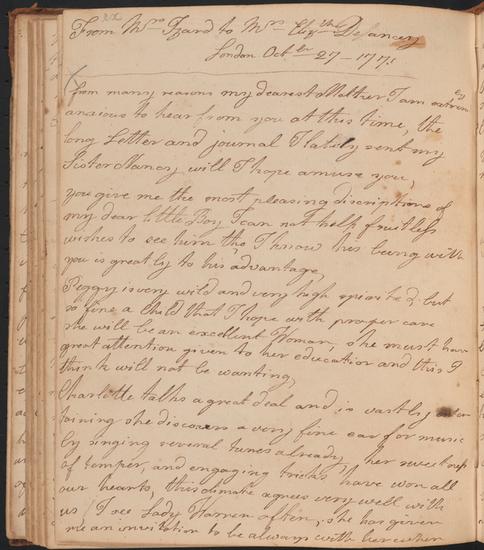 From Mrs Izard to Mrs Elizth Delancey
London Octber 27 - 1775
from many reasons my dearest Mother I am extrem ely
anxious to hear from you at this time, the
long Letter and journal I lately sent my
Sister Nancy will I hope amuse you,
you give me the most pleasing discriptions of
my dear little Boy I can not help fruitless
wishes to see him tho I know his being with
you is greatly to his advantage,
Peggy is very wild and very high spirited, but
so fine a Child that I hope with proper care
she will be an excellent Woman, she must have
great attention given to her education and this I
think will not be wanting,
Charlotte talks a great deal and is vastly enter
taining she discovers a very fine ear for music
by singing several tunes already, her sweetness
of temper, and engaging tricks have won all
our hearts, this climate agrees very well with
us I see Lady Warren often, she has given
me an invitation to be always with her when